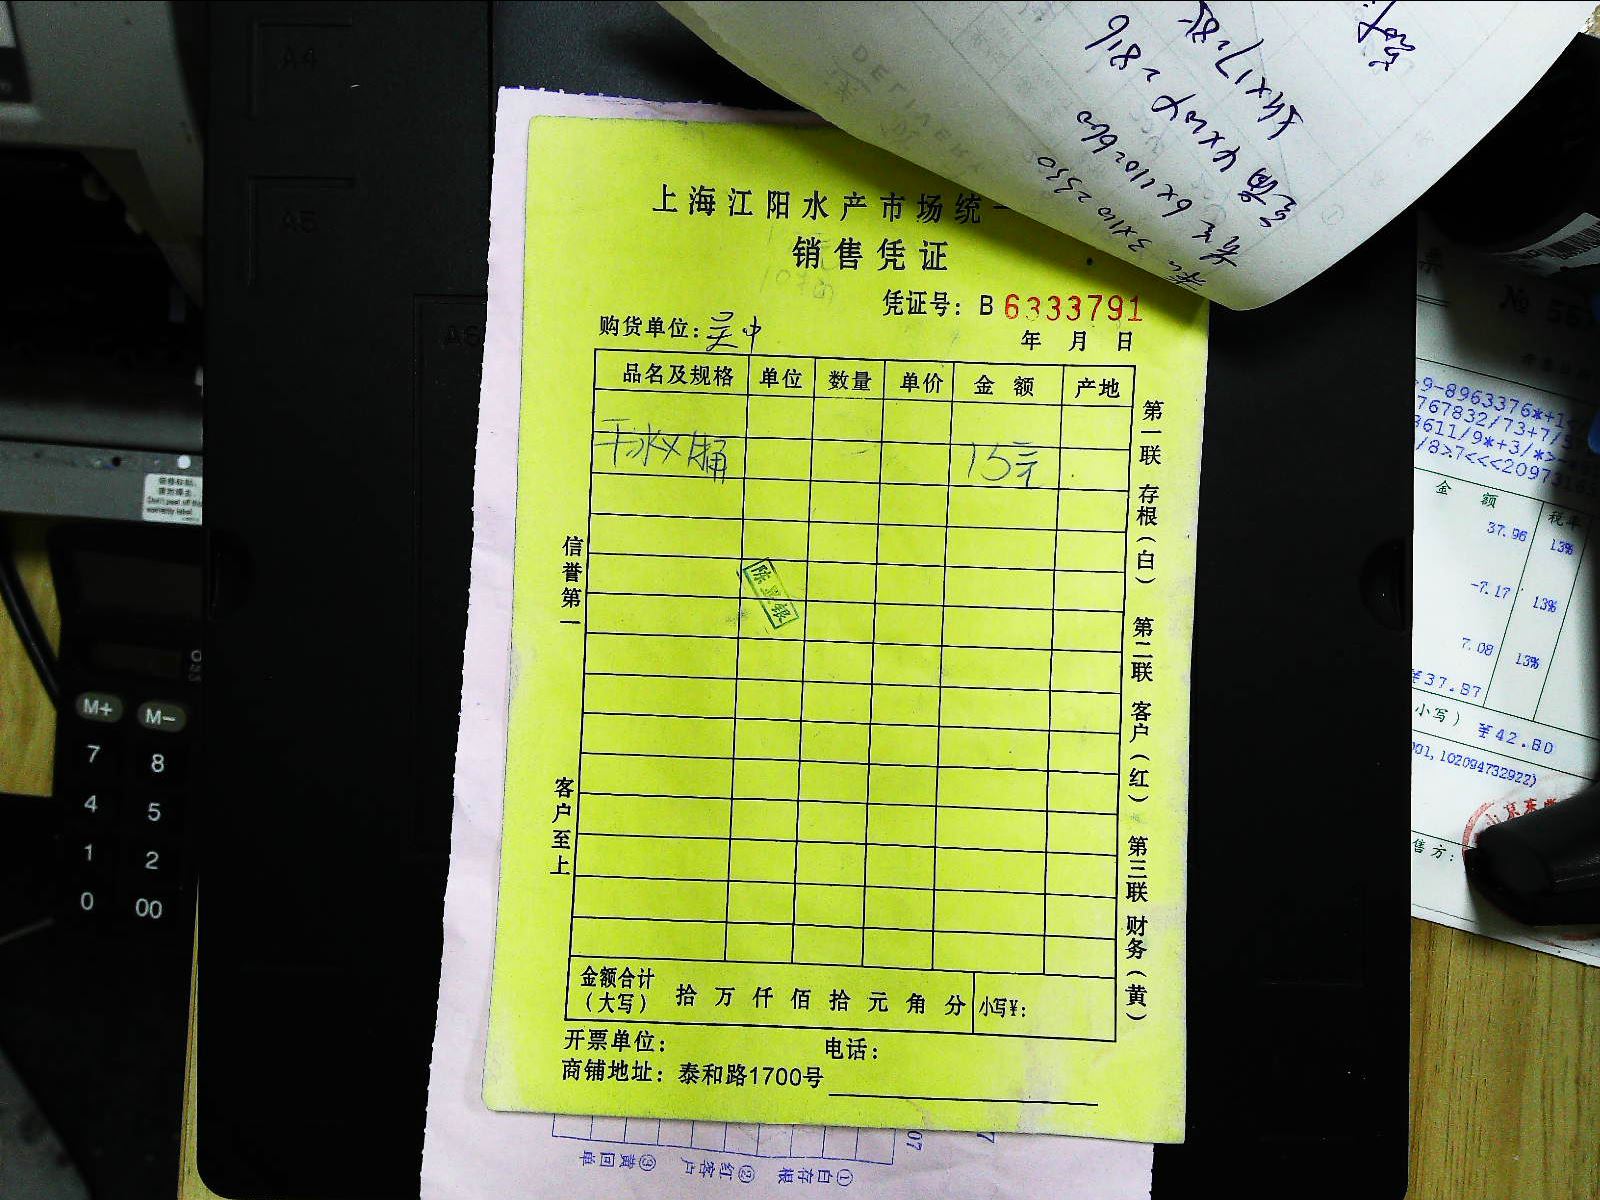 上海江阳水产市场统一
销售凭证
凭证号: B 6333791
购货单位: 吴中
年 月 日
品名及规格 单位 数量 单价 金额 产地
干冰 桶 15元
陈 银
信誉第一
客户至上
第一联 存根（白） 第二联 客户（红） 第三联 财务（黄）
金额合计（大写） 拾 万 仟 佰 拾 元 角 分 小写¥:
开票单位: 电话:
商铺地址: 泰和路1700号
①白存根 ②红客户 ③黄回单
07
3x110=330
6x110=660
4x204=816
5x17=85
A4
A5
A6
M+ M−
7 8
4 5
1 2
0 00
票
№
9-8963376*+1
767832/73+7/5
3611/9*+3/*>
/8>7<<<2097316
金额 税率
37.96 13%
-7.17 13%
7.08 13%
¥37.87
小写） ¥42.80
001,102094732922)
京东
售方: